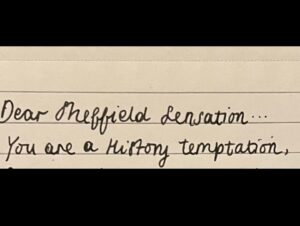 Dear Sheffield Sensation...
You are a History temptation,